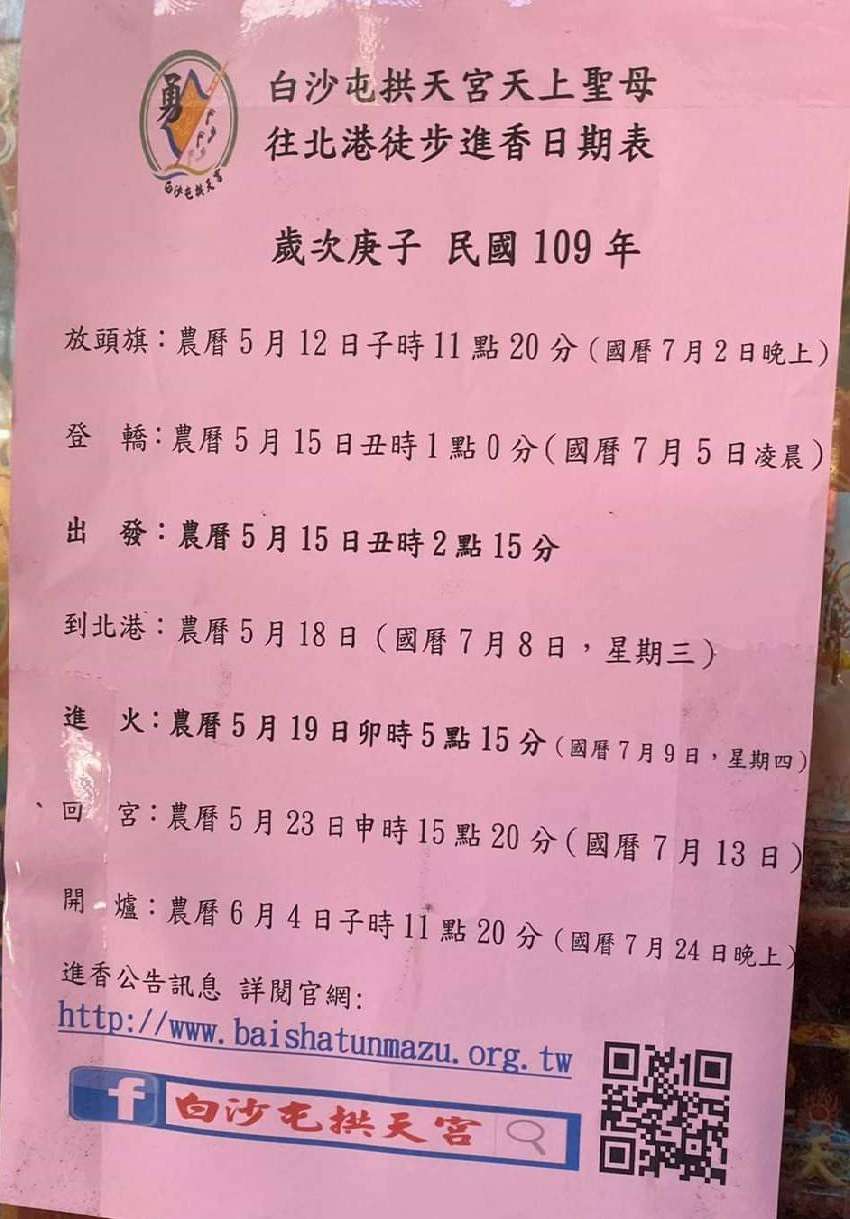 勇
白沙屯拱天宮
白沙屯拱天宮天上聖母
往北港徒步進香日期表
歲次庚子 民國109年
放頭旗：農曆5月12日子時11點20分（國曆7月2日晚上）
登 轎：農曆5月15日丑時1點0分（國曆7月5日凌晨）
出 發：農曆5月15日丑時2點15分
到北港：農曆5月18日（國曆7月8日，星期三）
進 火：農曆5月19日卯時5點15分（國曆7月9日，星期四）
、回 宮：農曆5月23日申時15點20分（國曆7月13日）
開 爐：農曆6月4日子時11點20分（國曆7月24日晚上）
進香公告訊息 詳閱官網:
http://www.baishatunmazu.org.tw
f 白沙屯拱天宮
天